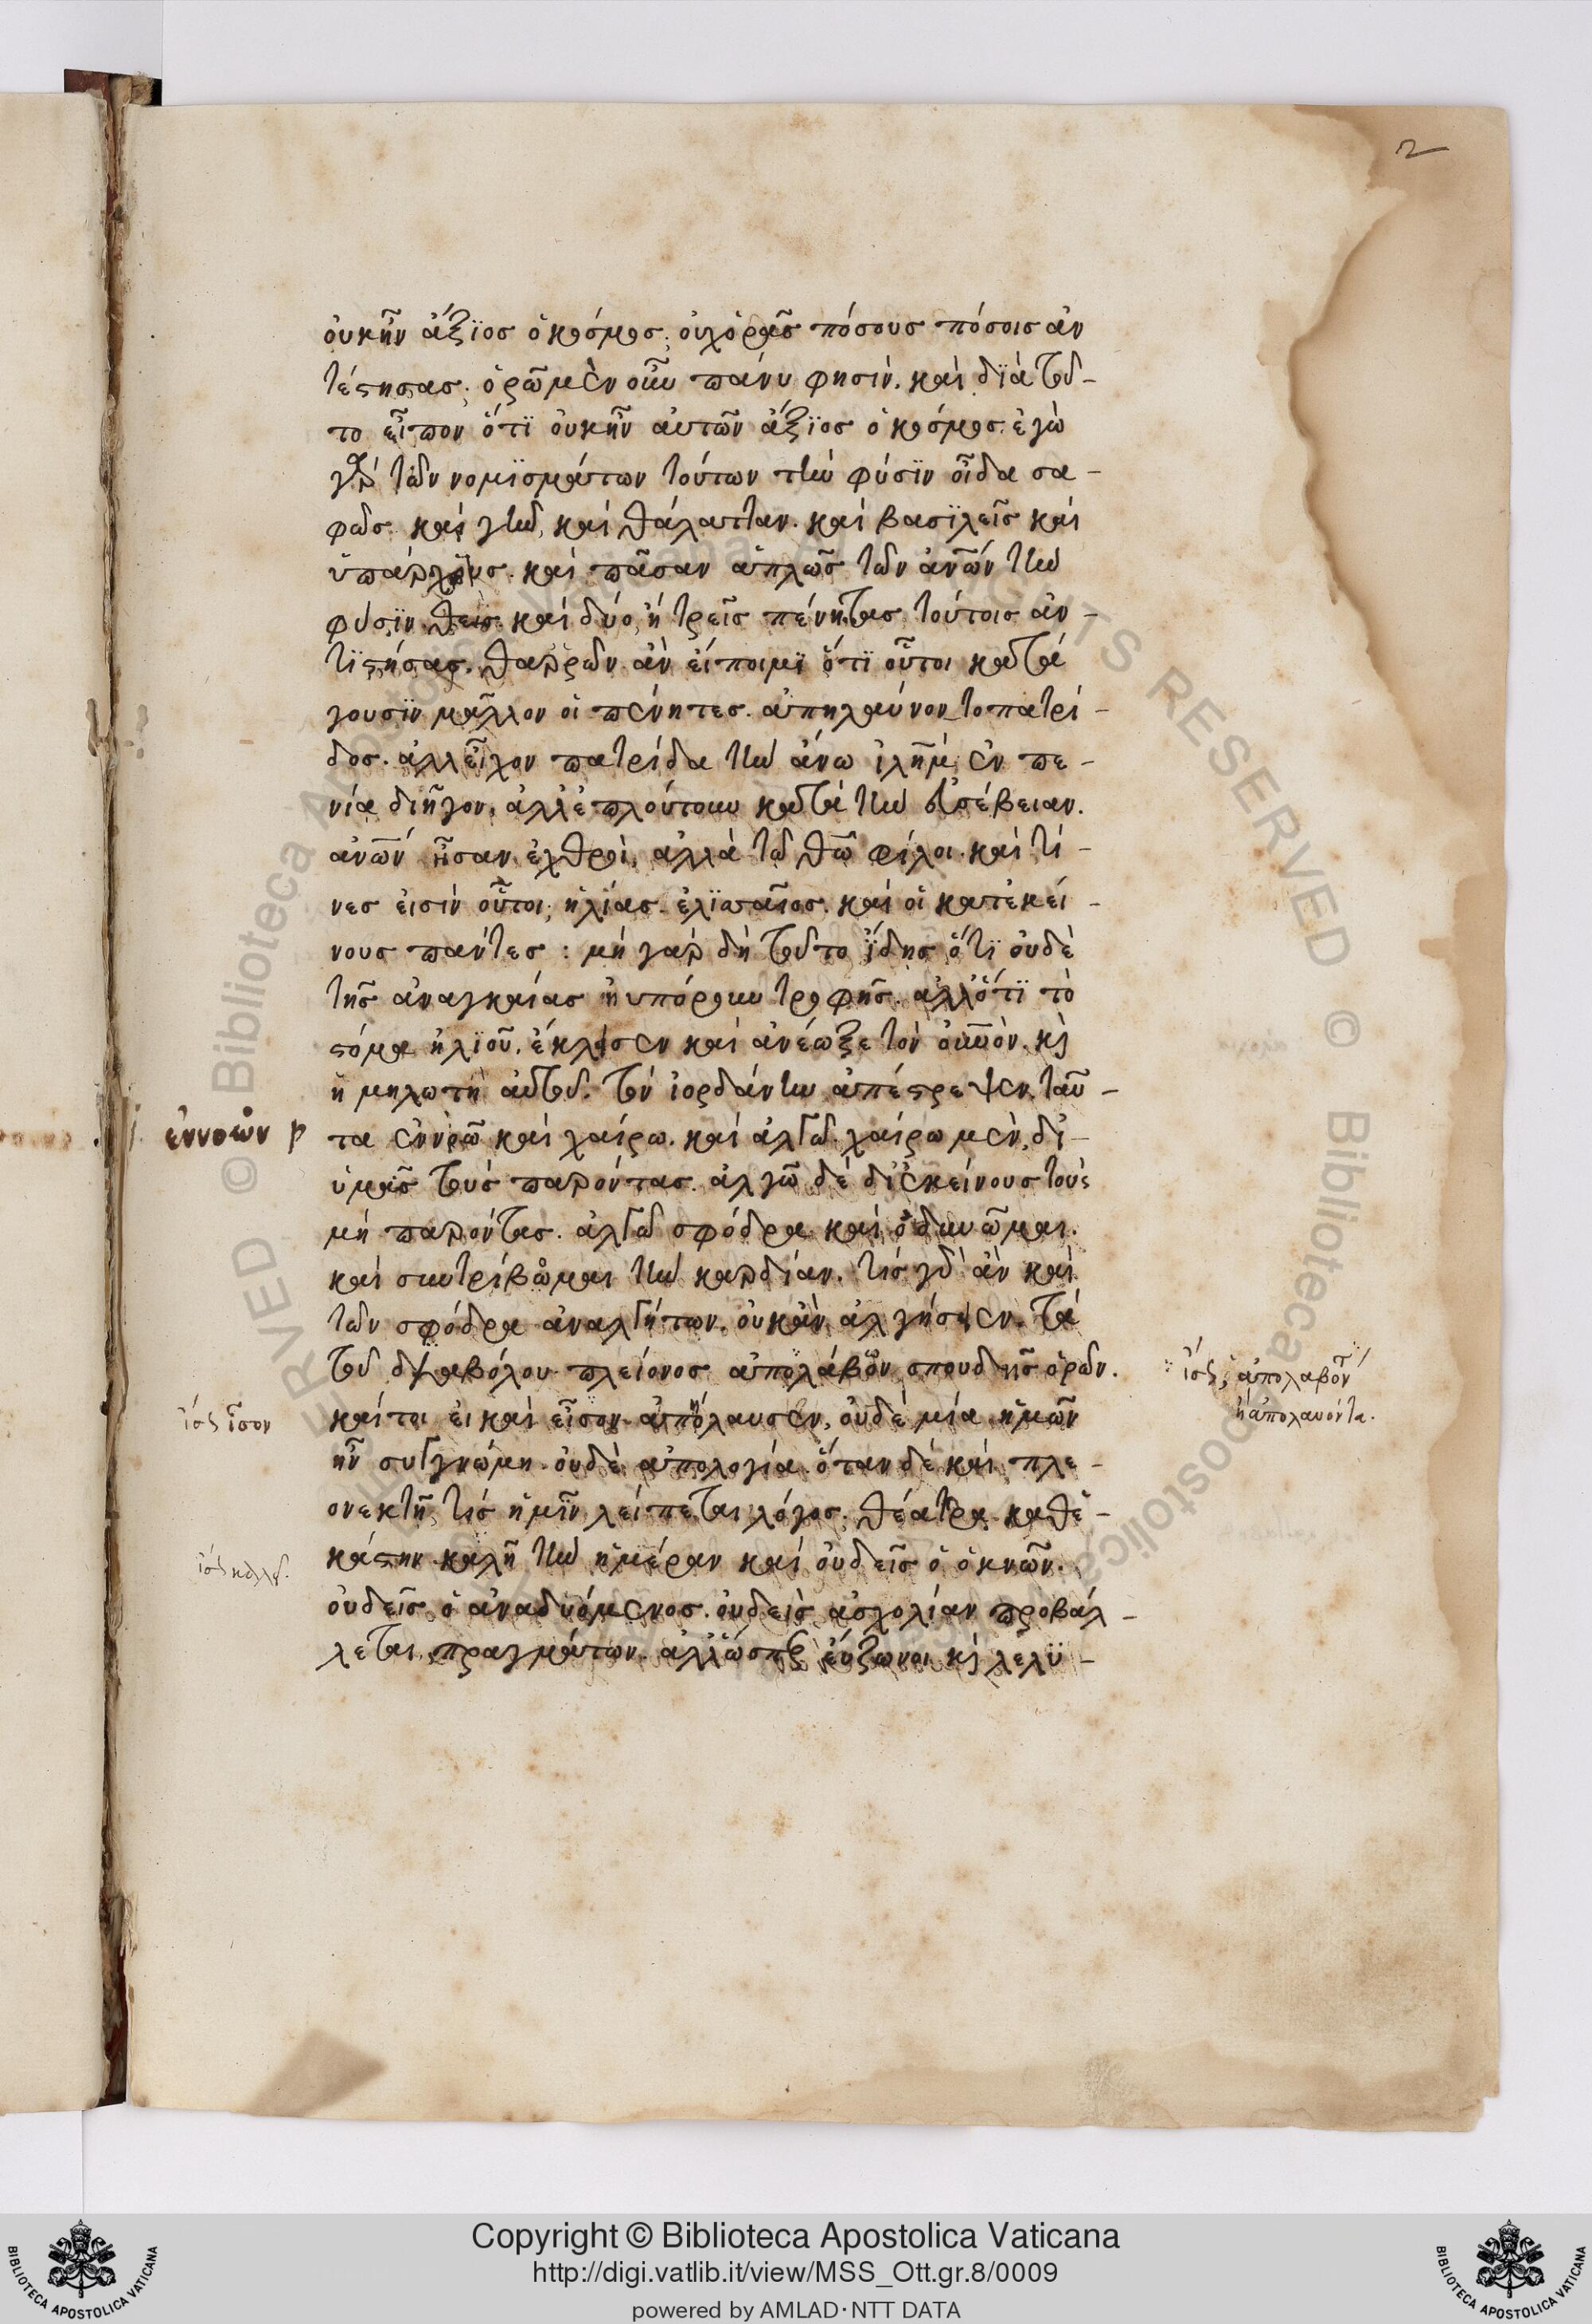 2
οὐκ ἦν ἄξϊος ὁ κόσμος; οὐχ ὁρᾶς πόσους πόσοις ἀν
τέστησας; ὁρῶμεν οὖν πάνυ φησίν. καὶ δϊὰ τοῦ-
το εἶπον ὅτϊ οὐκ ἦν αὐτῶν ἄξϊος ὁ κόσμος. ἐγὼ
γὰρ τῶν νομϊσμάτων τούτων τὴν φύσϊν οἶδα σα-
φῶς. καὶ γῆν, καὶ θάλατταν. καὶ βασϊλεῖς καὶ
ὑπάρχους. καὶ πᾶσαν ἁπλῶς τῶν ἀνων τὴν
φύσϊν θεὶς καὶ δύο ἢ τρεῖς πένητας τούτοις ἀν-
τϊστήσας. θαρρῶν ἂν εἴποιμϊ ὅτϊ οὗτοι κατά
γουσϊν μᾶλλον οἱ πένητες. ἀπηλαύνοντο πατρί-
δος. ἀλλ εἶχον πατρίδα τὴν ἄνω ἰλημ ἐν πε-
νία διῆγον, ἀλλ ἐπλούτουν κατὰ τὴν εὐσέβειαν.
ἀνων ἦσαν ἐχθροὶ, ἀλλὰ τῶ θω φίλοι. καὶ τί-
νες εἰσὶν οὗτοι; ἠλίας. ἐλϊσσαῖος. καὶ οἱ κατ ἐκεί-
νους πάντες : μὴ γὰρ δὴ τοῦτο ἴδης ὅτϊ οὐδὲ
τῆς ἀναγκαίας ηὐπόρουν τροφῆς. ἀλλ ὅτϊ τὸ
στόμα ἠλϊοῦ. ἔκλεισεν καὶ ἀνέωξε τὸν οὐνον. κὶ
ἡ μηλωτὴ αὐτοῦ. τὸν ἰορδάνην ἀπέστρεψεν. ταῦ-
ἐννοῶν
τα ἐννοῶ καὶ χαίρω. καὶ ἀλγῶ. χαίρω μὲν, δι
ὑμᾶς τοὺς παρόντας. ἀλγῶ δὲ δι ἐκείνους τοὺς
μὴ παρόντας. ἀλγῶ σφόδρα καὶ ὀδυνῶμαι.
καὶ συντρίβομαι τὴν καρδίαν. τίς γοῦν ἂν καὶ
τῶν σφόδρα ἀναλγήτων. οὐκ ἂν ἀλγήσειεν. τὰ
τοῦ διαβόλου πλείονος ἀπολάβον σπουδῆς ὁρῶν.
ἀπολαβὸν
ἢ ἀπολαυόντα.
ἴσον
καίτοι εἰ καὶ εἶσον ἀπήλαυσεν, οὐδὲ μία ἡμῶν
ἦν συγγνώμη. οὐδὲ ἀπολογία. ὅταν δὲ καὶ πλε-
ονεκτῆ τίς ἡμῖν λείπεται λόγος; θέατρα καθ ἑ-
κάστην καλῆ τὴν ἡμέραν καὶ οὐδεῖς ὁ ὀκνῶν.
οὐδεῖς ὁ ἀναδυόμενος. οὐδεὶς ἀσχολίαν προβάλ-
λεται πραγμάτων. ἀλλ ὥσπερ εὔζωνοι κὶ λελϋ-
Copyright © Biblioteca Apostolica Vaticana
http://digi.vatlib.it/view/MSS_Ott.gr.8/0009
powered by AMLAD·NTT DATA